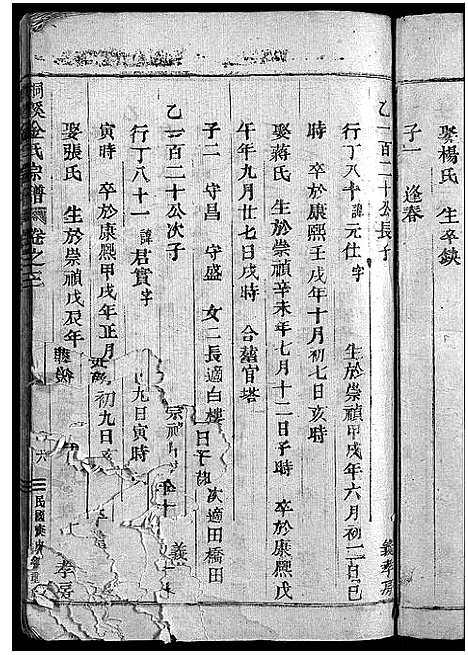 娶楊氏 生卒缺
子一 逢春
乙一百二十公長子 義孝房
行丁八十 諱元仕 字 生於崇禎甲戌年六月初二日巳
時 卒於康熙壬戌年十月初七日亥時
娶蔣氏 生於崇禎辛未年七月十二日子時 卒於康熙戊
午年九月廿七日戌時 合葬官塔
子二 守昌 守盛 女二長適白樓 次適田橋田
乙一百二十公次子 義 孝房
行丁八十一 諱君賞 字
寅時 卒於康熙甲戌年正月 九日寅時
娶張氏 生於崇禎戊辰年 初九日亥
桐溪金氏宗譜 卷之 民國